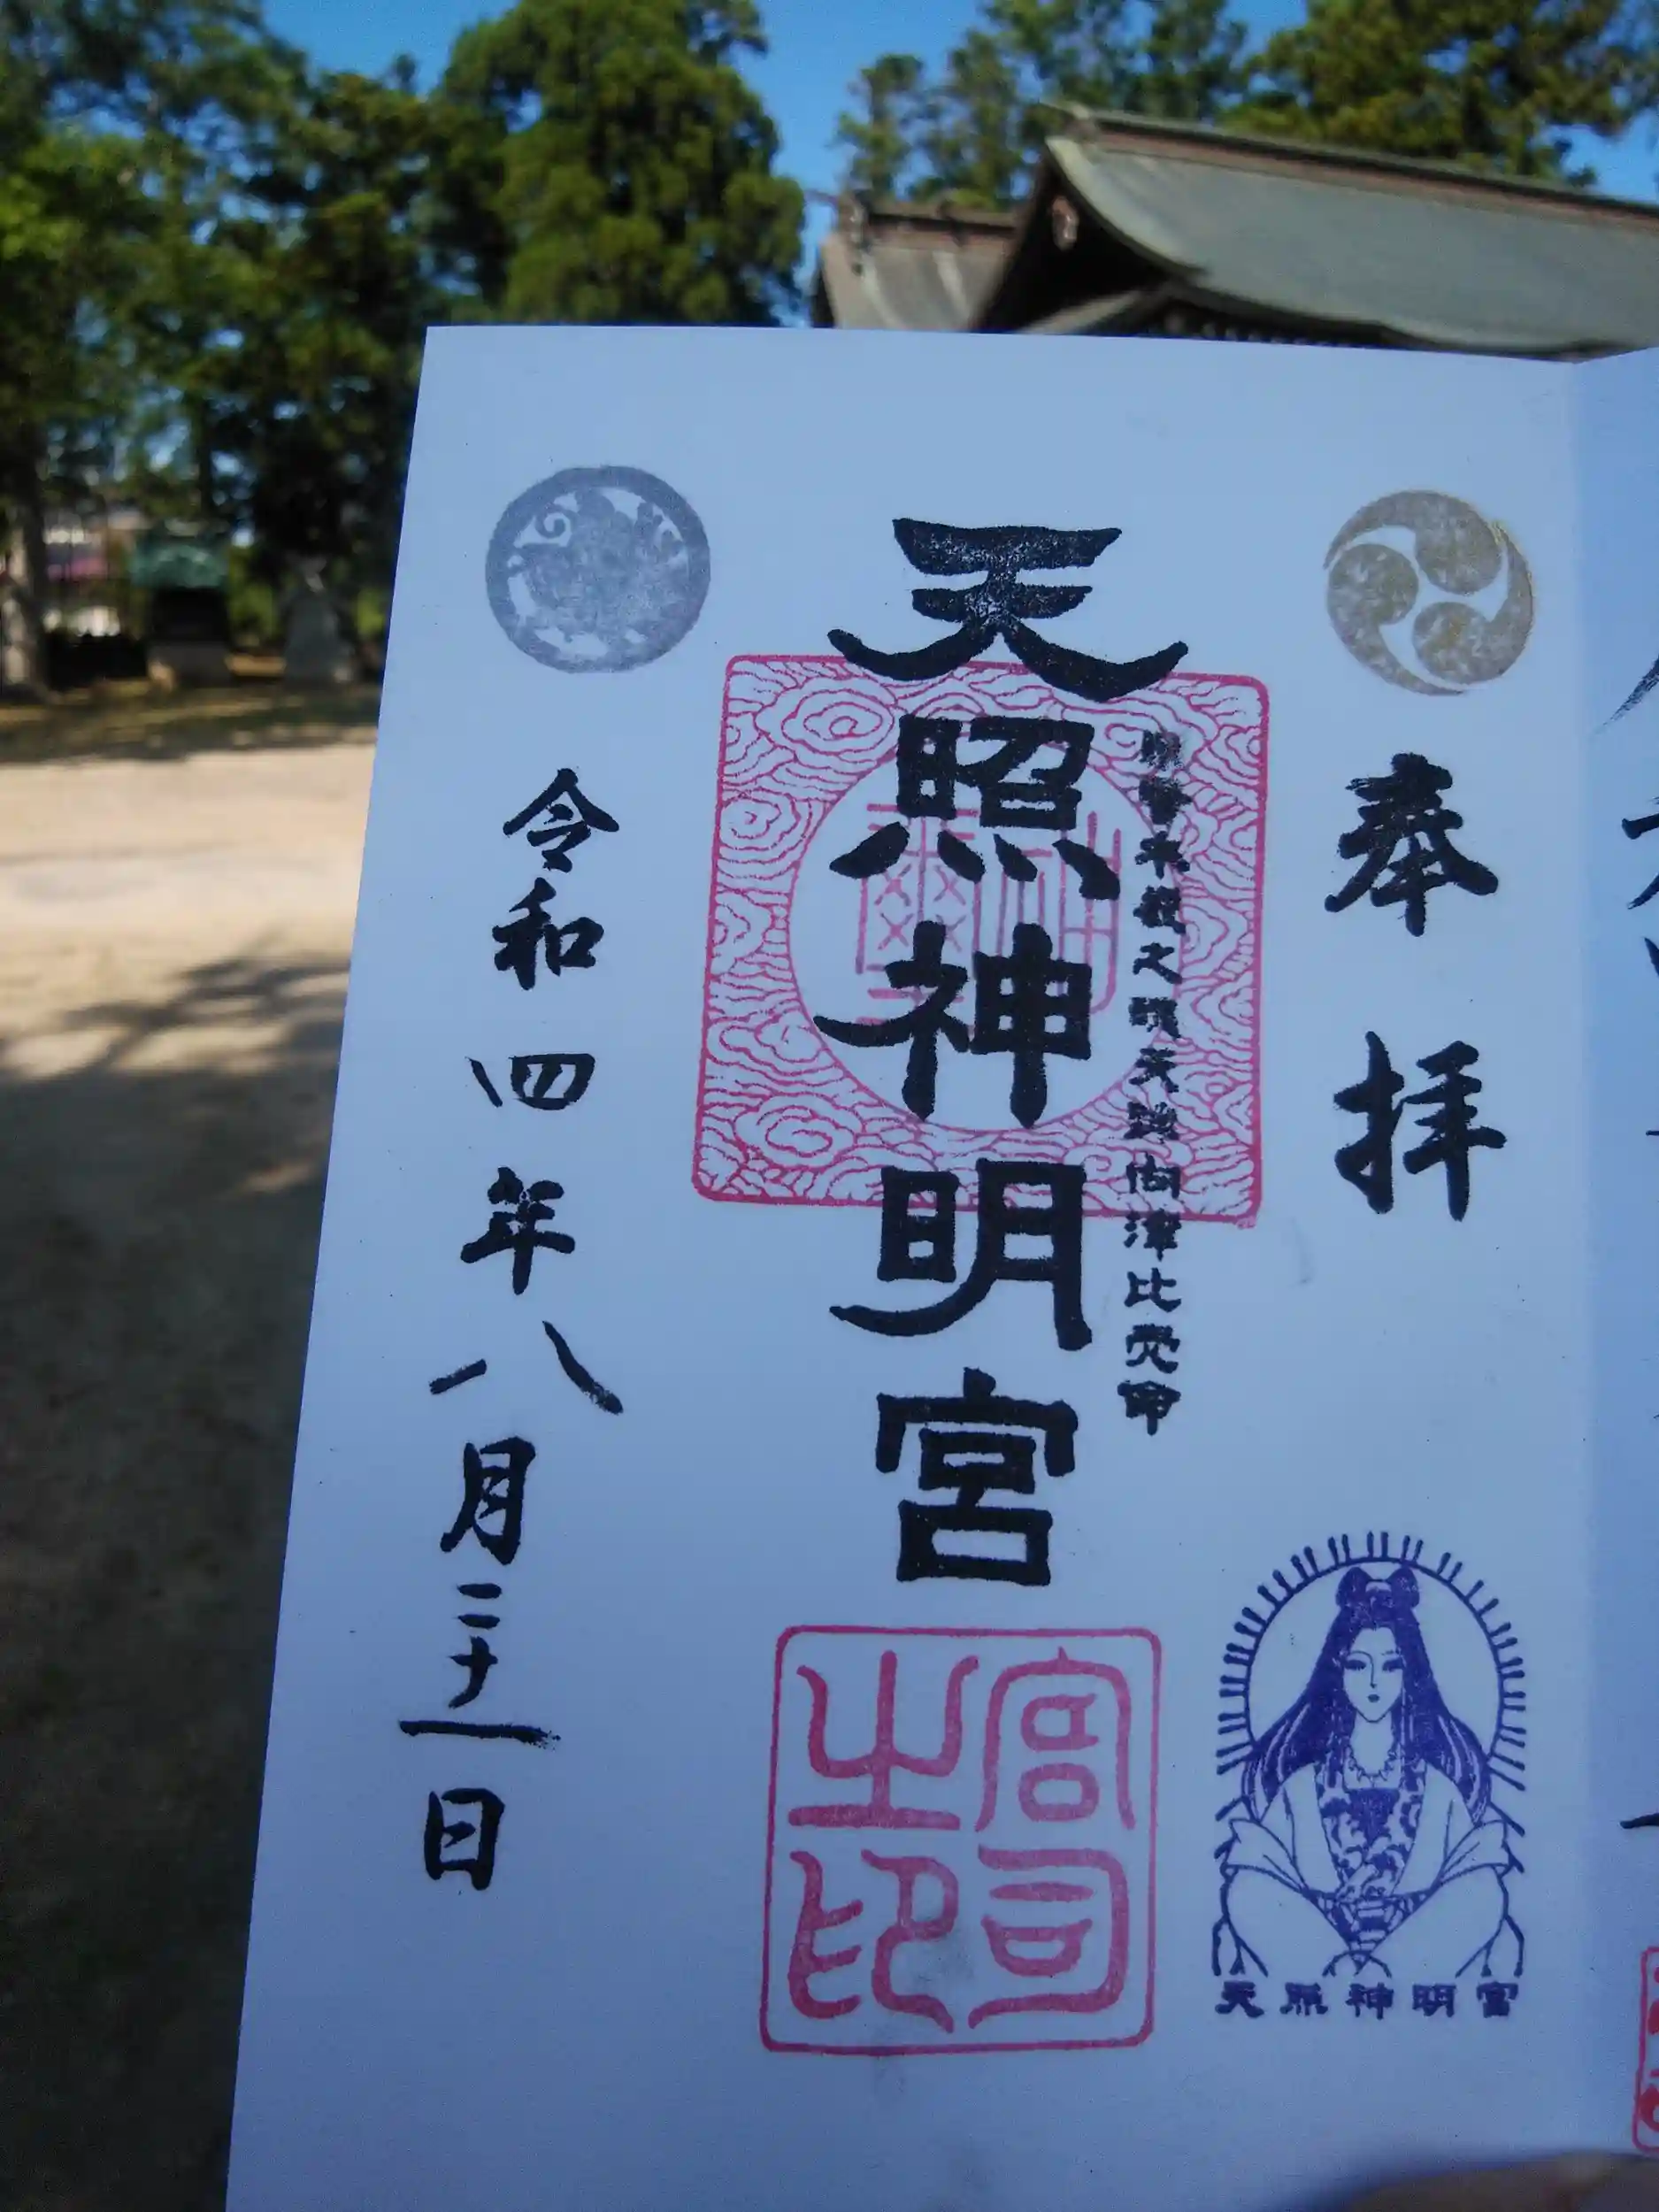 奉拝
撞賢木厳之魂天疎向津比売命
天照神明宮
令和四年八月二十一日
宮司之印
天照神明宮